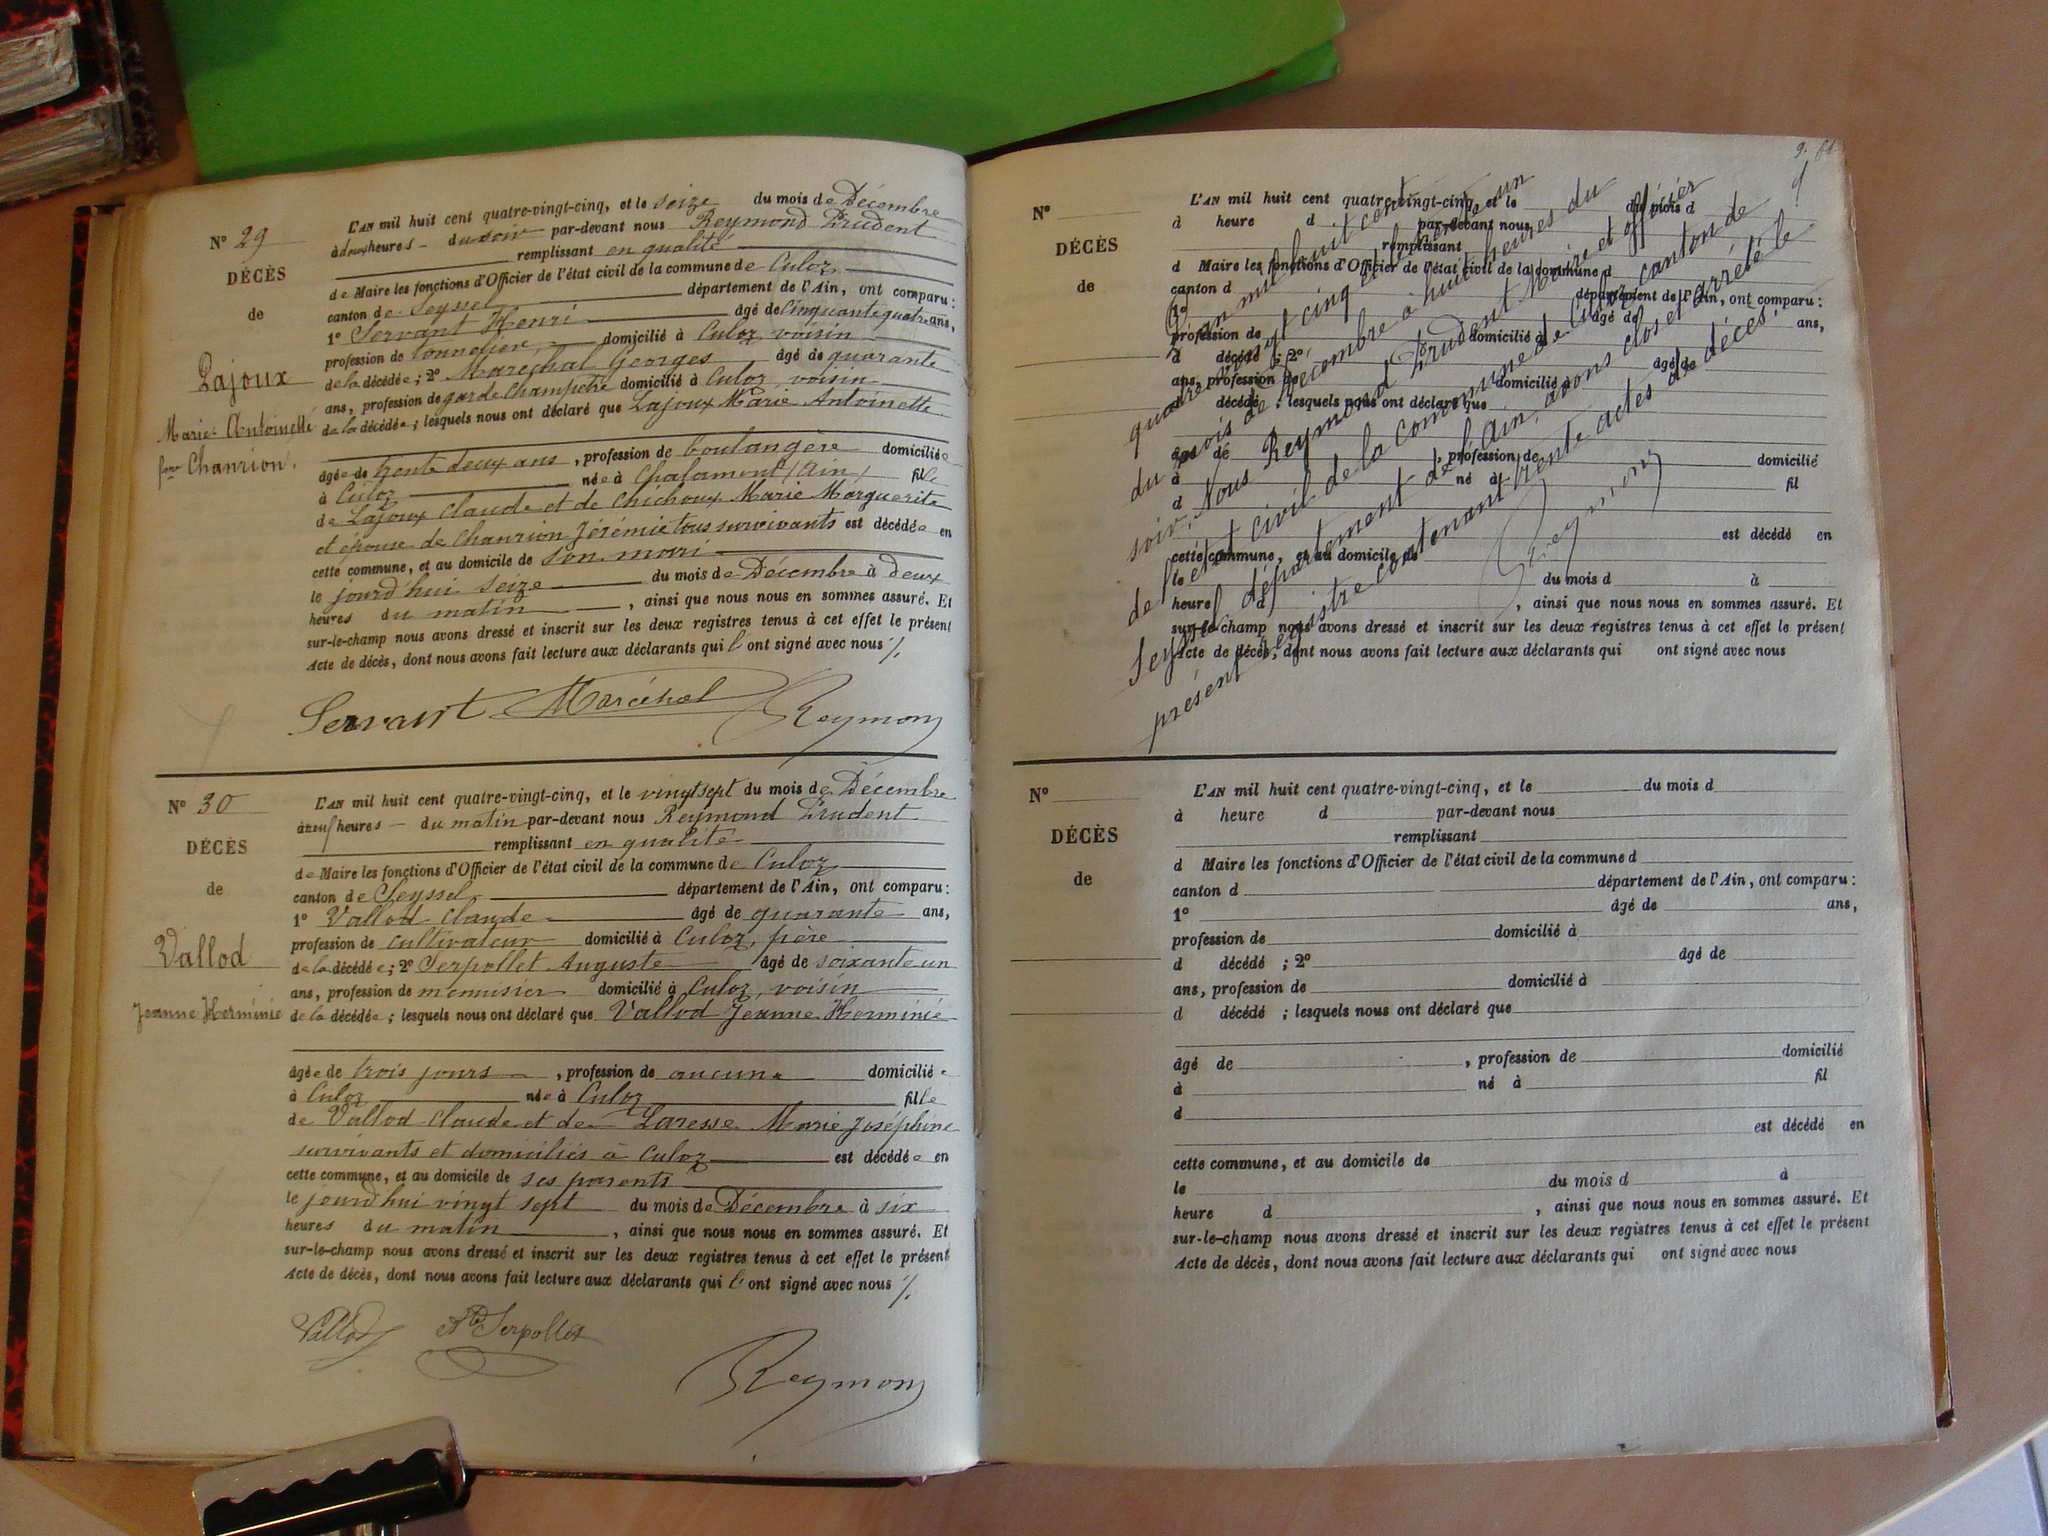 N° 29
DÉCÈS
de
Lajoux
Marie Antoinette
fme Chanrion.
L'AN mil huit cent quatre-vingt-cinq, et le seize du mois de Décembre
à deux heures du soir par-devant nous Reymond Prudent
remplissant en qualité
de Maire les fonctions d'Officier de l'état civil de la commune de Culoz
canton de Seyssel département de l'Ain, ont comparu :
1° Servant Henri âgé de Cinquante quatre ans,
profession de tonnelier, domicilié à Culoz, voisin
de la décédée ; 2° Maréchal Georges âgé de quarante
ans, profession de garde champêtre domicilié à Culoz, voisin
de la décédée ; lesquels nous ont déclaré que Lajoux Marie Antoinette
âgée de trente deux ans, profession de boulangère domiciliée
à Culoz née à Chalamont (Ain) fille
de Lajoux Claude et de Chichoux Marie Marguerite
et épouse de Chanrion Jérémie tous survivants est décédée en
cette commune, et au domicile de son mari
le jourd'hui seize du mois de Décembre à deux
heures du matin, ainsi que nous nous en sommes assuré. Et
sur-le-champ nous avons dressé et inscrit sur les deux registres tenus à cet effet le présent
Acte de décès, dont nous avons fait lecture aux déclarants qui l'ont signé avec nous ./.
Servant Maréchal Reymond
N° 30
DÉCÈS
de
Vallod
Jeanne Herminie
L'AN mil huit cent quatre-vingt-cinq, et le vingt sept du mois de Décembre
à neuf heures du matin par-devant nous Reymond Prudent
remplissant en qualité
de Maire les fonctions d'Officier de l'état civil de la commune de Culoz
canton de Seyssel département de l'Ain, ont comparu :
1° Vallod Claude âgé de quarante ans,
profession de cultivateur domicilié à Culoz, père
de la décédée ; 2° Serpollet Auguste âgé de soixante un
ans, profession de menuisier domicilié à Culoz, voisin
de la décédée ; lesquels nous ont déclaré que Vallod Jeanne Herminie
âgée de trois jours, profession de aucune domiciliée
à Culoz née à Culoz fille
de Vallod Claude et de Laresse Marie Joséphine
survivants et domiciliés à Culoz est décédée en
cette commune, et au domicile de ses parents
le jourd'hui vingt sept du mois de Décembre à six
heures du matin, ainsi que nous nous en sommes assuré. Et
sur-le-champ nous avons dressé et inscrit sur les deux registres tenus à cet effet le présent
Acte de décès, dont nous avons fait lecture aux déclarants qui l'ont signé avec nous ./.
Vallod Ate Serpollet
Reymond
N°
DÉCÈS
de
L'AN mil huit cent quatre-vingt-cinq, et le du mois d
à heure d par-devant nous
remplissant
d Maire les fonctions d'Officier de l'état civil de la commune d
canton d département de l'Ain, ont comparu :
1° âgé de ans,
profession de domicilié à
d décédé ; 2° âgé de
ans, profession de domicilié à
d décédé ; lesquels nous ont déclaré que
âgé de , profession de domicilié
à né à fil
d
est décédé en
cette commune, et au domicile de
le du mois d à
heure d , ainsi que nous nous en sommes assuré. Et
sur-le-champ nous avons dressé et inscrit sur les deux registres tenus à cet effet le présent
Acte de décès, dont nous avons fait lecture aux déclarants qui ont signé avec nous
L'an mil huit cent
quatre vingt cinq et le trente un
du mois de Décembre à huit heures du
soir, Nous Reymond Prudent Maire et officier
de l'état civil de la commune de Culoz canton de
Seyssel département de l'Ain, avons clos et arrêté le
présent registre contenant trente actes de décès.
Reymond
N°
DÉCÈS
de
L'AN mil huit cent quatre-vingt-cinq, et le du mois d
à heure d par-devant nous
remplissant
d Maire les fonctions d'Officier de l'état civil de la commune d
canton d département de l'Ain, ont comparu :
1° âgé de ans,
profession de domicilié à
d décédé ; 2° âgé de
ans, profession de domicilié à
d décédé ; lesquels nous ont déclaré que
âgé de , profession de domicilié
à né à fil
d
est décédé en
cette commune, et au domicile de
le du mois d à
heure d , ainsi que nous nous en sommes assuré. Et
sur-le-champ nous avons dressé et inscrit sur les deux registres tenus à cet effet le présent
Acte de décès, dont nous avons fait lecture aux déclarants qui ont signé avec nous